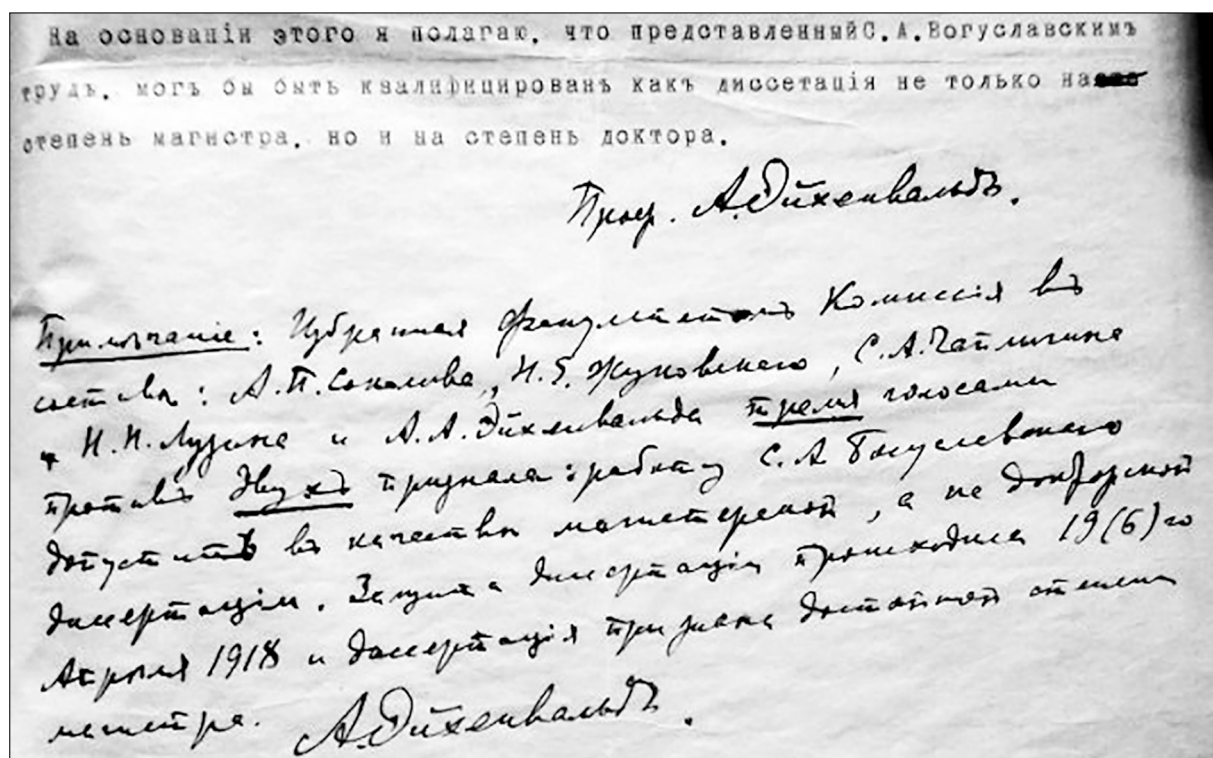 На основаніи этого я полагаю, что представленный С.А.Богуславскимъ
трудъ, могъ бы быть квалифицированъ какъ диссетація не только на
степень магистра, но и на степень доктора.
Проф. А.Эйхенвальдъ.
Примѣчаніе: Избранная факультетомъ Комиссія въ
составѣ: А.П.Соколова, Н.Е.Жуковскаго, С.А.Чаплыгина
Н.Н.Лузина и А.А.Эйхенвальда тремя голосами
противъ двухъ признала: работу С.А Богуславскаго
допустить въ качествѣ магистерской, а не докторской
диссертаціи. Защита диссертаціи происходила 19(6)го
Апрѣля 1918 и диссертація признана достойной степени
магистра. А.Эйхенвальдъ.